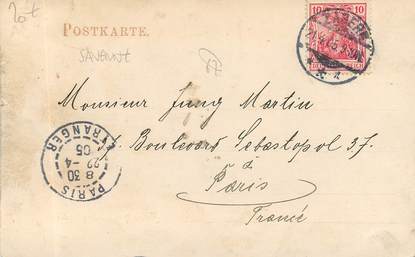 POSTKARTE.
10 10
Monsieur Jung Martin
Boulevard Sebastopol 37
à
Paris
France
PARIS
8 30
22-4
05
ETRANGER